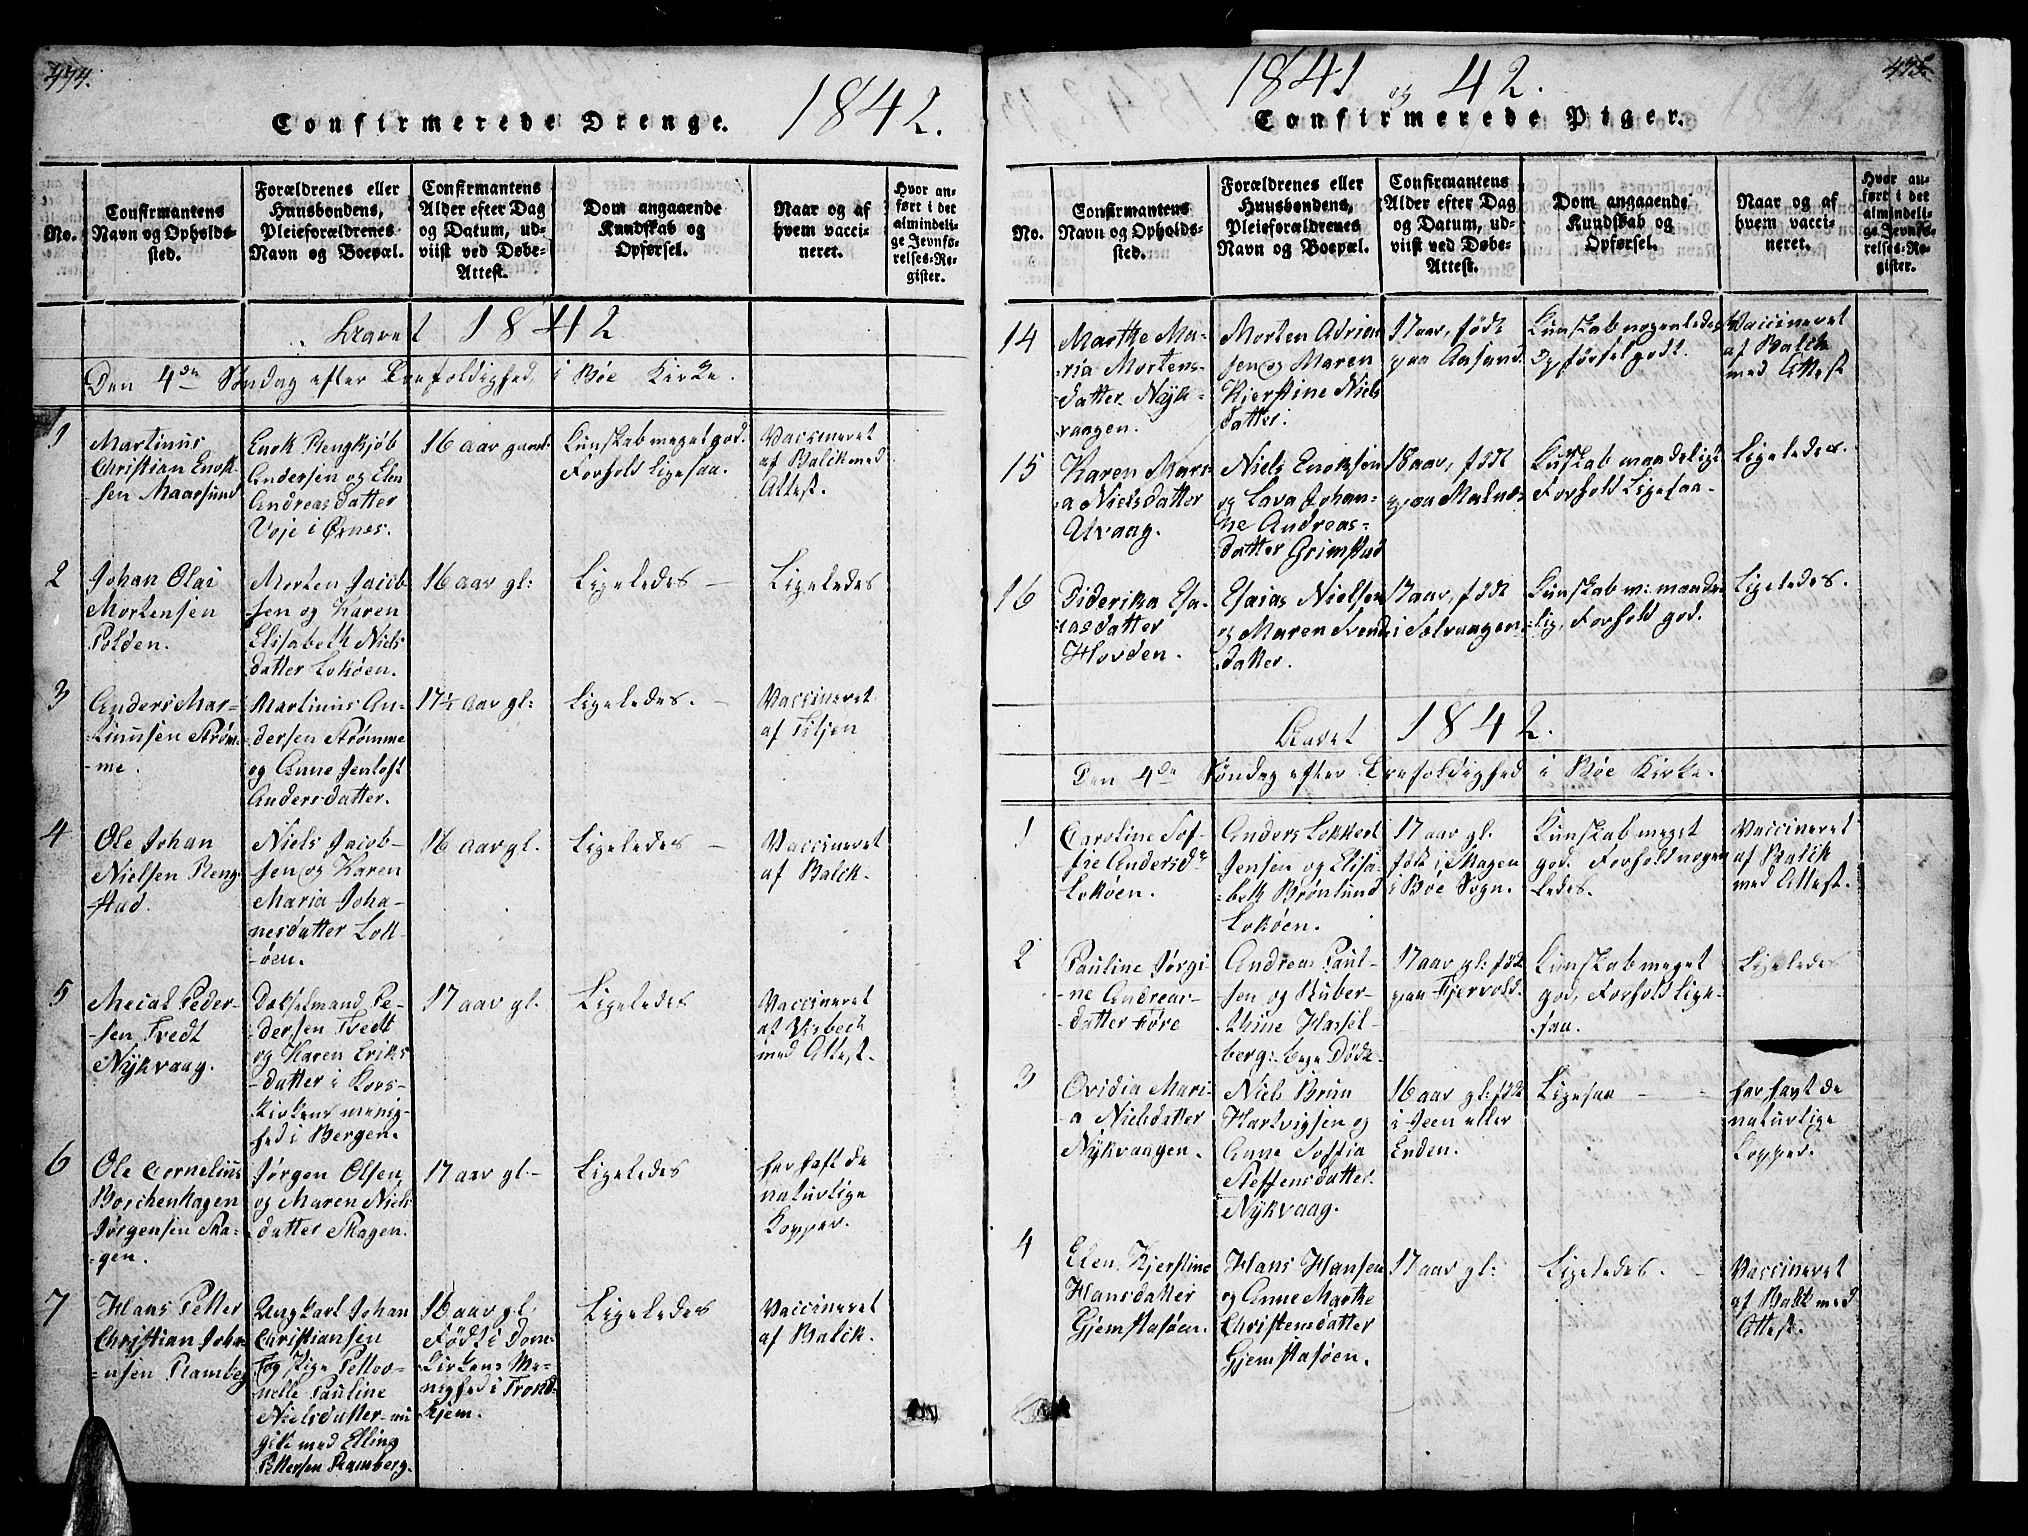 474.
1842.
Confirmerede Drenge.
No.
Confirmantens
Navn og Opholds-
sted.
Forældrenes eller
Huusbondens,
Pleieforældrenes
Navn og Boepæl.
Confirmantens
Alder efter Dag
og Datum, ud-
viist ved Døbe-
Attest.
Dom angaaende
Kundskab og
Opførsel.
Naar og af
hvem vacci-
neret.
Hvor an-
ført i det
almindeli-
ge Jevnfø-
relses-Re-
gister.
Aaret 1842
Den 4de Søndag efter Trefoldighed i Bøe Kirke.
1
Martinus
Christian Enok-
sen Maarsund
Enok Rengkjøb
Andersen og Elen
Andreasdatter
Voje i Ørnes.
16 aar gaml.
Kunskab meget god.
Forhold ligesaa.
Vaccineret
af Balik med
Attest.
2
Johan Olai
Mortensen
Polden.
Morten Jacob-
sen og Karen
Elisabeth Niels
datter Lokøen.
16 aar gl:
Ligeledes
Ligeledes
3
Anders Mar-
tinusen Strøm-
me.
Martinus An-
dersen Strømme
og Anne Jentoft
Andersdatter.
17½ aar gl:
Ligeledes.
Vaccineret
af Tiljen
4
Ole Johan
Nielsen Reng-
stad.
Niels Jacob-
sen og Karen
Maria Joha-
nesdatter Lok-
øen.
16 aar gl.
Ligeledes
Vaccineret
af Balik.
5
Mecal Peder-
sen Tvedt
Nÿkvaag.
Pe-
dersen Tvedt
og Karen Eriks
datter i Kors-
kirkens menig-
hed i Bergen.
17 aar gl.
Ligeledes
Vaccineret
af Visbech
med Attest.
6
Ole Cornelius
Boschenhagen
Jørgensen Ska-
gen.
Jørgen Olsen
og Maren Niels
datter Skagen.
17 aar gl
Ligeledes
har haft de
naturlige
Kopper.
7
Hans Petter
Christian Johan
sen Ramberg
Ungkarl Johan
Christiansen
og Pige Petro-
nelle Pauline
Nielsdatter nu
gift med Elling
Pettersen Ramberg.
16 aar gl.
Født i Dom-
kirkens Me-
nighed i Trond-
hjem.
Ligeledes
Vaccineret
af Balik.
475.
1841 og 42.
Confirmerede Piger.
No.
Confirmantens
Navn og Opholds-
sted.
Forældrenes eller
Huusbondens,
Pleieforældrenes
Navn og Boepæl.
Confirmantens
Alder efter Dag
og Datum, ud-
viist ved Døbe-
Attest.
Dom angaaende
Kundskab og
Opførsel.
Naar og af
hvem vacci-
neret.
Hvor an-
ført i det
almindeli-
ge Jevnfø-
relses-Re-
gister.
14
Marthe Ma-
ria Mortens-
datter Nÿk-
vaagen.
Morten Adrian
sen og Maren
Kjerstine Niels
datter.
17 aar, født
paa Aasand.
Kunskab nogenledes
Opførsel godt.
Vaccineret
af Balik
med Attest
15
Karen Mari-
a Nielsdatter
Utvaag.
Niels Enoksen
og Lava Johan-
ne Andreas-
datter Grimstad
18 aar, født
paa Malnes
Kunskab maadelig
Forhold ligesaa.
Ligeledes.
16
Diderika Esa-
iasdatter
Hovden.
Esaias Nielsen
og Maren Svends
datter.
17 aar, født
i Solvaagen
Kunskab m: maade-
lig, Forhold god.
Ligeledes.
Aaret 1842.
Den 4de Søndag efter Trefoldighed i Bøe Kirke.
1
Caroline Sof-
fie Andersdr
Lokøen.
Anders Lokkert
Jensen og Elisa-
beth Brønlund
Lokøen.
17 aar gl.
født i Skagen
i Bøe Sogn.
Kunskab meget
god. Forhold nogen
ledes.
Vaccineret
af Balik
med Attest.
2
Pauline Jørgi-
ne Andreas-
datter Føre
Andreas Paul-
sen og Huber-
thine Hassel-
berg: bege Døde
17 aar gl: født
paa Fjervold.
Kunskab meget
god, Forhold lige-
saa.
Ligeledes
3
Ovidia Mari-
a Nielsdatter
Nÿkvaagen.
Niels Brun
Hartvigsen og
Anne Soffia
Steffensdatter
Nÿkvaag.
16 aar gl: født
i Steen eller
Enden.
Ligesaa
har havt de
naturlige
Kopper.
4
Elen Kjerstine
Hansdatter
Gjemstasøen.
Hans Hansen
og Anne Marthe
Christensdatter
Gjemstasøen.
17 aar gl:
Ligeledes.
Vaccineret
af Balik med
Attest.